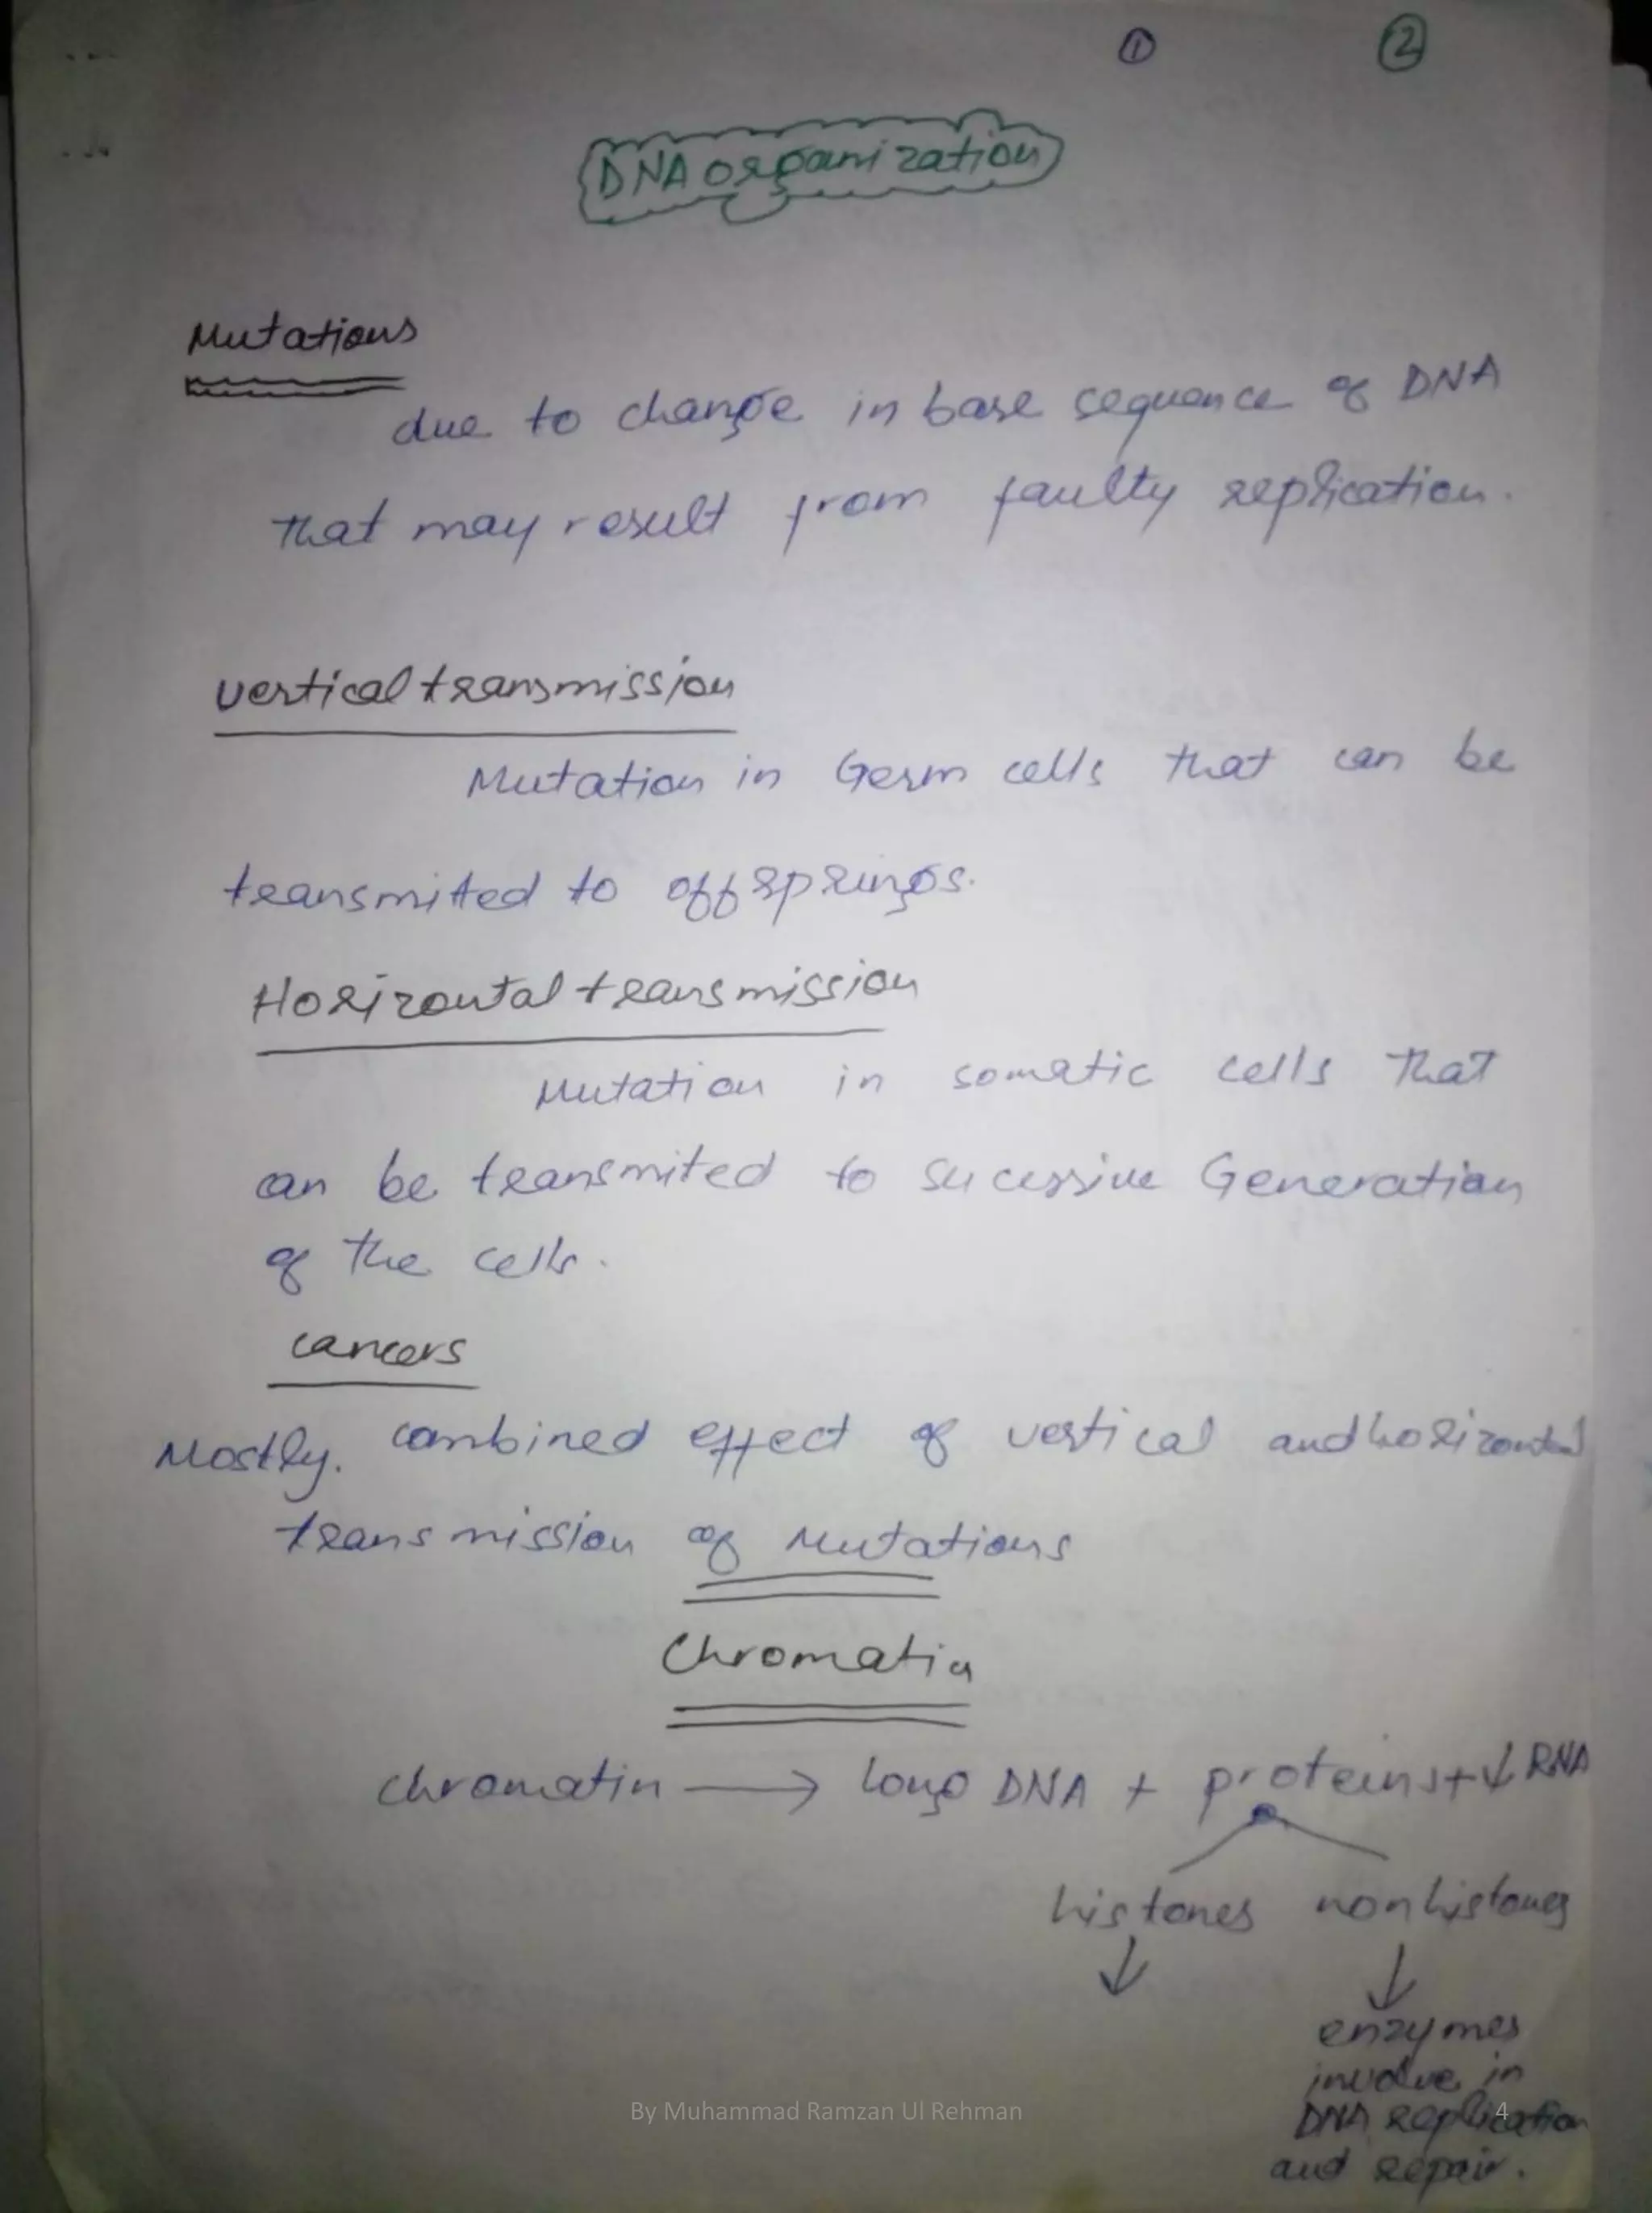 ① ②
DNA organization
Mutations
due to change in base sequence of DNA
that may result from faulty replication.
vertical transmission
Mutation in Germ cells that can be
transmitted to offsprings.
Horizontal transmission
Mutation in somatic cells that
can be transmited to sucessive Generation
of the cells.
cancers
Mostly. combined effect of vertical and horizontal
transmission of Mutations
Chromatin
chromatin → long DNA + proteins + ↓ RNA
histones nonhistones
↓ ↓
enzymes
involve in
DNA replication
and repair.
By Muhammad Ramzan Ul Rehman 4